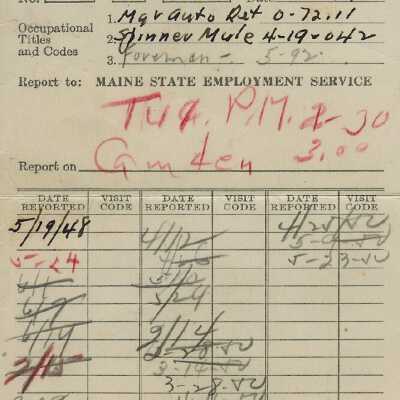 Occupational
Titles
and Codes
1. Mgr Auto Ret 0-72.11
2. Spinner Mule 4-19-042
3. Foreman - 5-92
Report to: MAINE STATE EMPLOYMENT SERVICE
Tue. P.M. 2-30
3.00
Report on Camden
DATE REPORTED VISIT CODE DATE REPORTED VISIT CODE DATE REPORTED VISIT CODE
5/19/48 4/12 4/25/50
5-24 5-9-50
5/12 5-23-50
6/9 5/24
6/19 2/14
3-14-50
3-28-50